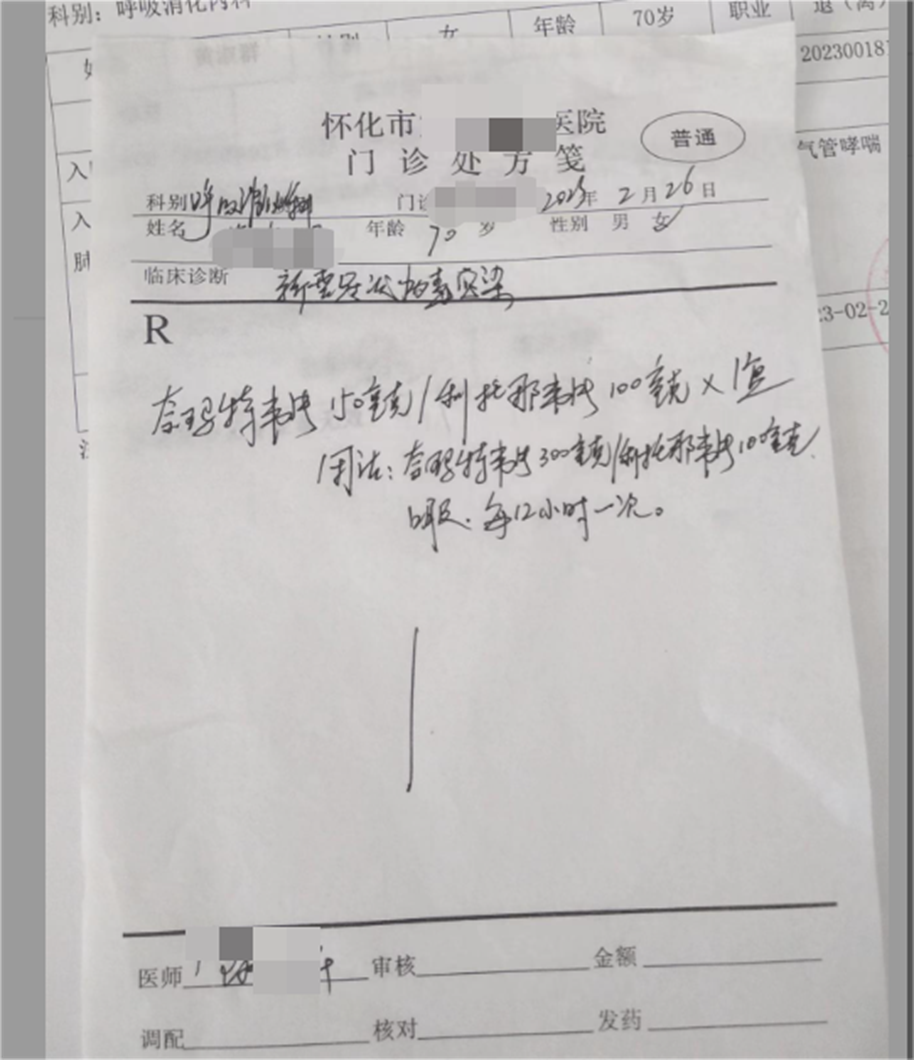 科别：呼吸消化内科
女 年龄 70岁 职业 退（离）
202300181
气管哮喘
入
入
肺
23-02-2
怀化市 医院
普通
门诊处方笺
科别 呼吸消化内科 门诊 2023年 2月26日
姓名 年龄 70岁 性别 男 女
临床诊断 新型冠状病毒感染
R
奈玛特韦片150毫克/利托那韦片100毫克×1盒
用法：奈玛特韦片300毫克/利托那韦片100毫克
口服．每12小时一次。
医师 审核 金额
调配 核对 发药